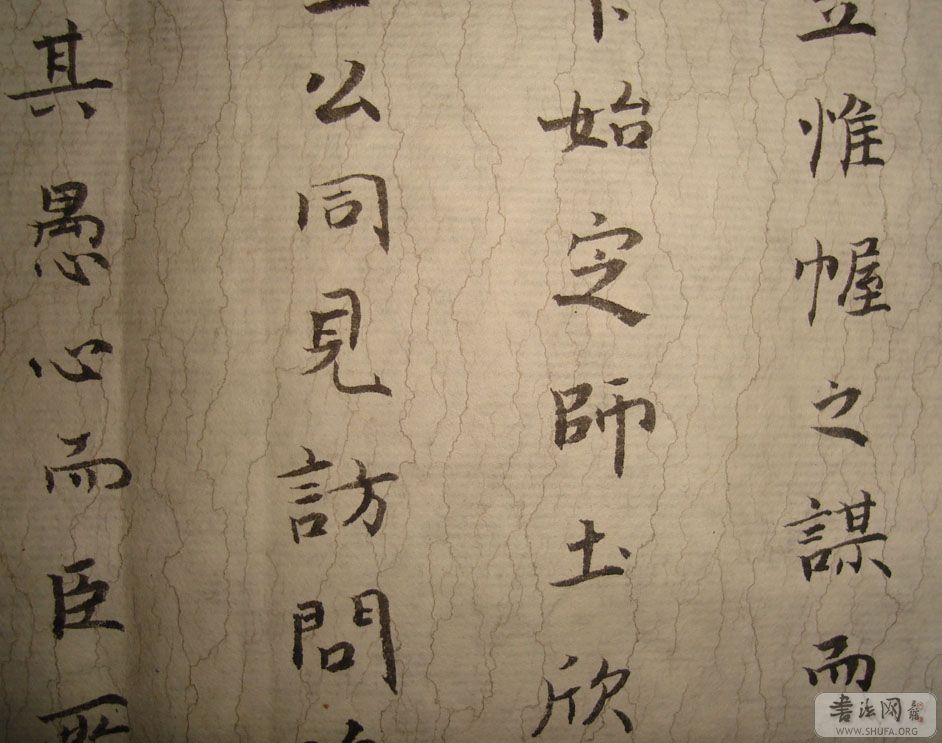 立惟幄之謀而
下始定師圡欣
公同見訪問
其愚心而臣所
書法网
WWW.SHUFA.ORG